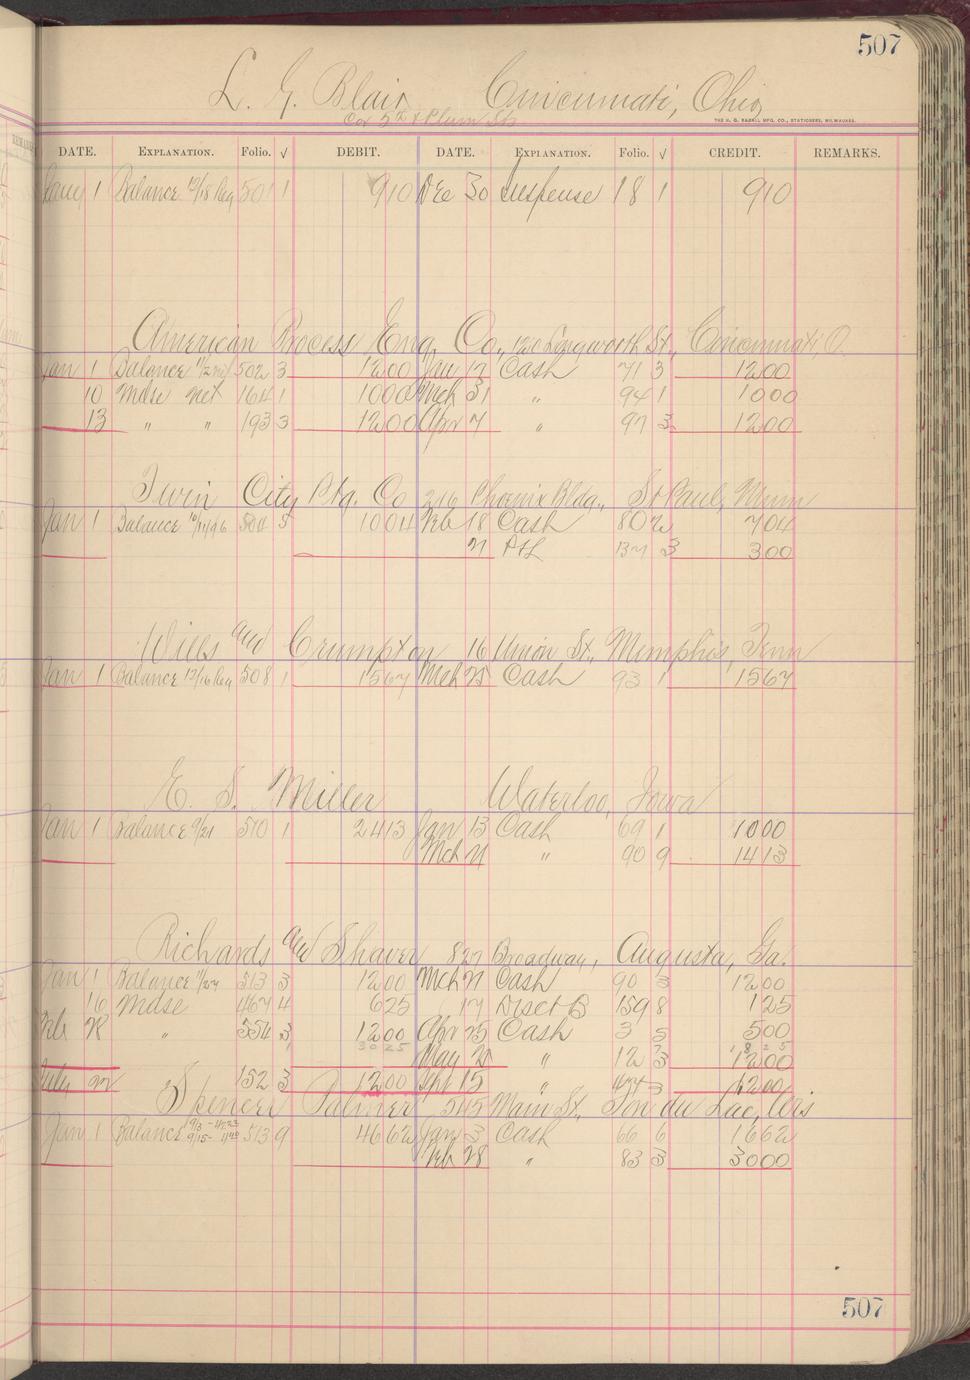 507
L. G. Blair Cincinnati, Ohio
Cor 5th & Plum Sts
THE H. G. RAZALL MFG. CO., STATIONERS, MILWAUKEE.
DATE. EXPLANATION. Folio. √ DEBIT. DATE. EXPLANATION. Folio. √ CREDIT. REMARKS.
Jany 1 Balance 12/18 Reg 501 1 910 Dec 30 Suspense 18 1 910
American Process Eng. Co., 120 Longworth St., Cincinnati, O.
Jan 1 Balance 502 3 1200 Jan 17 Cash 71 3 1200
10 Mdse net 164 1 1000 Mch 31 " 94 1 1000
13 " " 193 3 1200 Apr 7 " 97 3 1200
Twin City Ptg. Co 216 Phoenix Bldg., St Paul, Minn
Jan 1 Balance 504 5 1004 Feb 18 Cash 80 2 704
21 P&L 137 3 300
Wills and Crumpton 16 Union St., Memphis, Tenn
Jan 1 Balance 12/16 Reg 508 1 1567 Mch 25 Cash 93 1 1567
E. S. Miller Waterloo, Iowa
Jan 1 Balance 9/21 510 1 2413 Jan 13 Cash 69 1 1000
Mch 21 " 90 9 1413
Richards and Shaver 827 Broadway, Augusta, Ga.
Jan 1 Balance 11/27 513 3 1200 Mch 21 Cash 90 3 1200
16 Mdse 467 4 625 17 Disct B 159 8 125
Feb 28 " 554 3 1200 Apr 25 Cash 3 5 500
3025 May 21 " 12 3 1200
1825
July 22 152 3 1200 Spt 15 " 3 1200
Spencer Palmer 545 Main St., Fon du Lac, Wis
Jan 1 Balance 513 9 4662 Jan 3 Cash 66 6 1662
Feb 28 " 83 3 3000
507